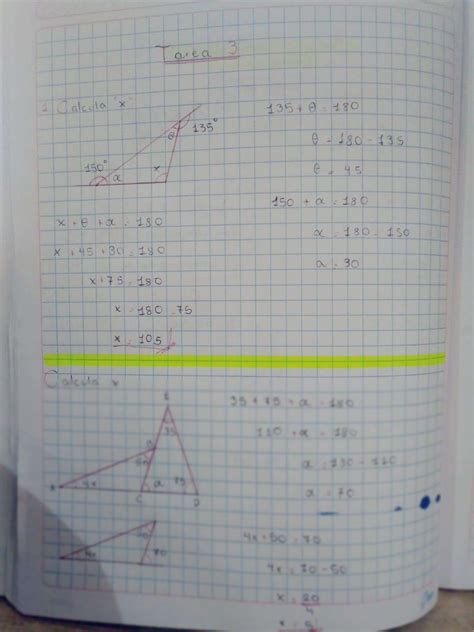 Tarea 3
1 Calcula "x"
150° α θ x 135°
135 + θ = 180
θ = 180 - 135
θ = 45
150 + α = 180
α = 180 - 150
α = 30
x + θ + α = 180
x + 45 + 30 = 180
x + 75 = 180
x = 180 - 75
x = 105
Calcula x
E
35
B
50
A 4x C α 75 D
35 + 75 + α = 180
110 + α = 180
α = 70
50
4x 70
4x + 50 = 70
4x = 70 - 50
x = 20
4